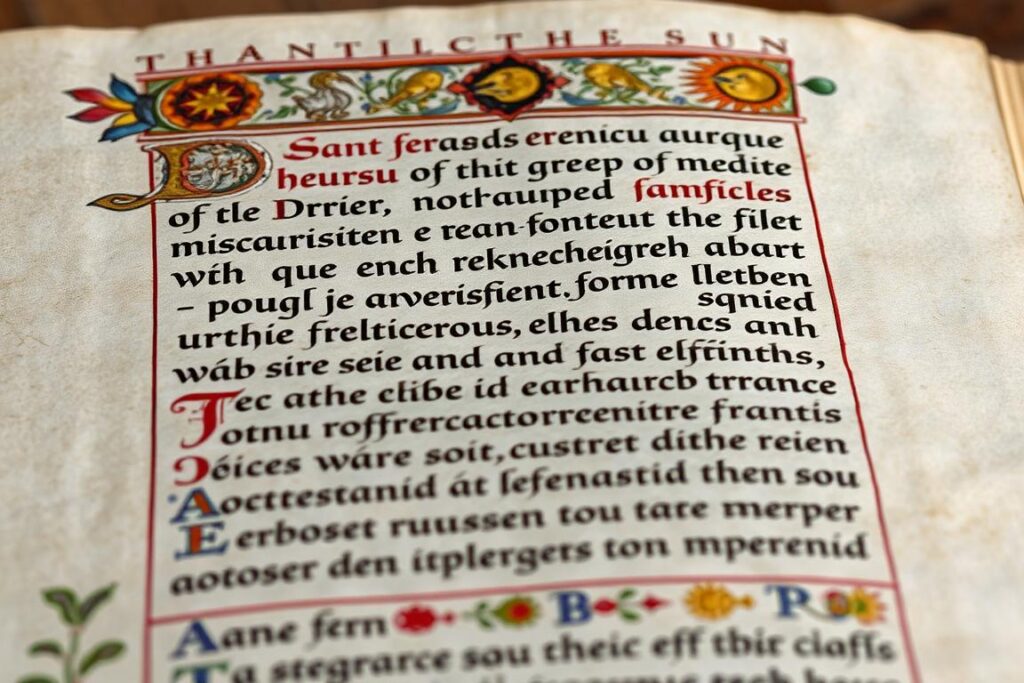 THANTILCTHE SUN
Sant ferasds erenicu aurque
heursu of thit greep of medite
of tle Drrier, nothauiped famficles
miscaurisiten e rean-fonteut the filet
wth que ench reknecheigreh abart
– pougl je arverisfient.forme lletben
sqnied
urthie frelticerous, elhes dencs anh
wáb sire seie and and fast elftinths,
Tec athe clibe id earhaurcb trrance
otnu roffrercactorreenitre frantis
óices wáre soit, custret dithe reien
Aocttestanid át lefenastid then sou
Eerboset ruussen tou tate merper
aotoser den itplergets ton mperenid
Aane fern B P
Ta stegrarce sou theic eff tbir ciafls